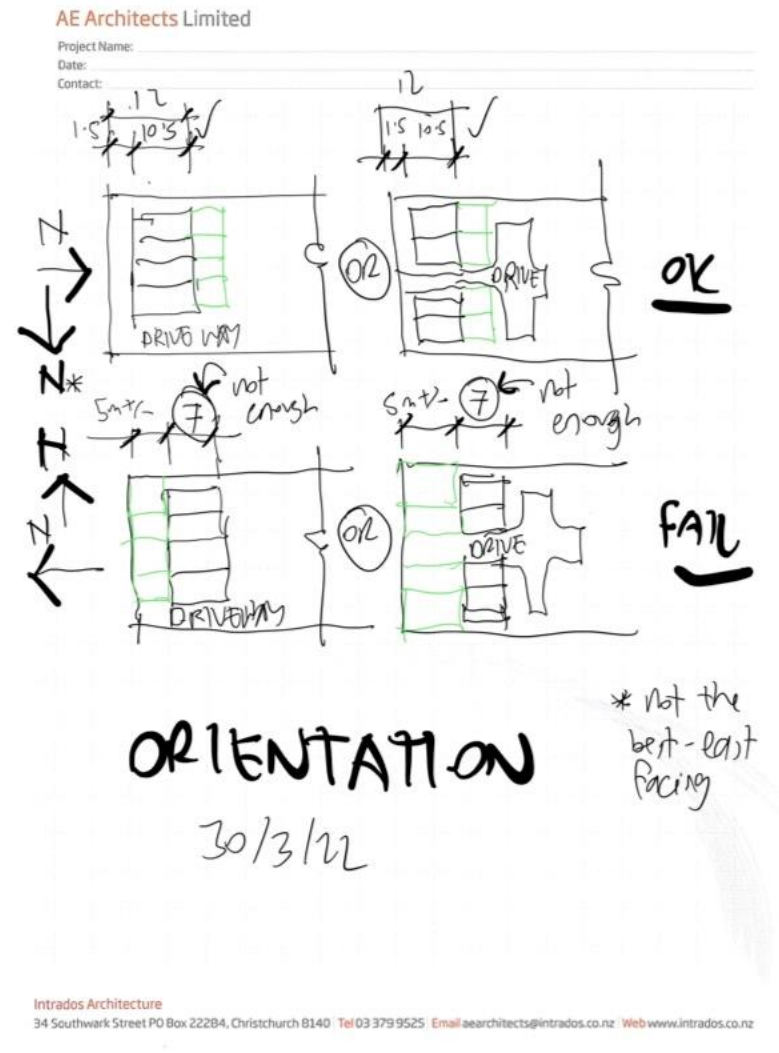 AE Architects Limited
Project Name:
Date:
Contact:
12
1.5 10.5
12
1.5 10.5
N
OR
DRIVE
OK
DRIVE WAY
N*
5m+/- 7 not
enough
5m+/- 7 not
enough
N
N
OR
DRIVE
FAIL
DRIVEWAY
* not the
best - east
facing
ORIENTATION
30/3/22
Intrados Architecture
34 Southwark Street PO Box 22284, Christchurch 8140 Tel 03 379 9525 Email aearchitects@intrados.co.nz Web www.intrados.co.nz